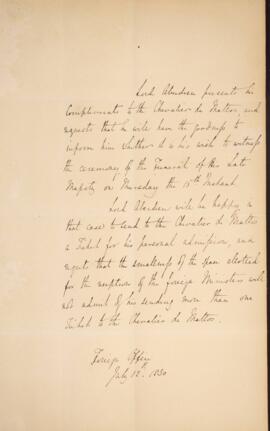 Lord Aberdeen presents his
Compliments to the Chevalier de Mattos, and
requests that he will have the goodness to
inform him whether it is his wish to witness
the ceremony of the Funeral of His Late
Majesty on Thursday the 15th Instant.
Lord Aberdeen will be happy in
that case to send to the Chevalier de Mattos
a Ticket for his personal admission, and
regrets that the smallness of the space allotted
for the reception of the Foreign Ministers will
not admit of his sending more than one
Ticket to the Chevalier de Mattos.
Foreign Office
July 12th 1830